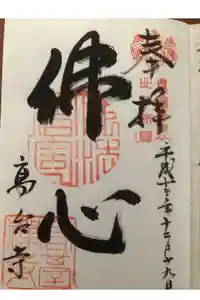 奉拝
平成十三年十二月十九日
佛心
高台寺